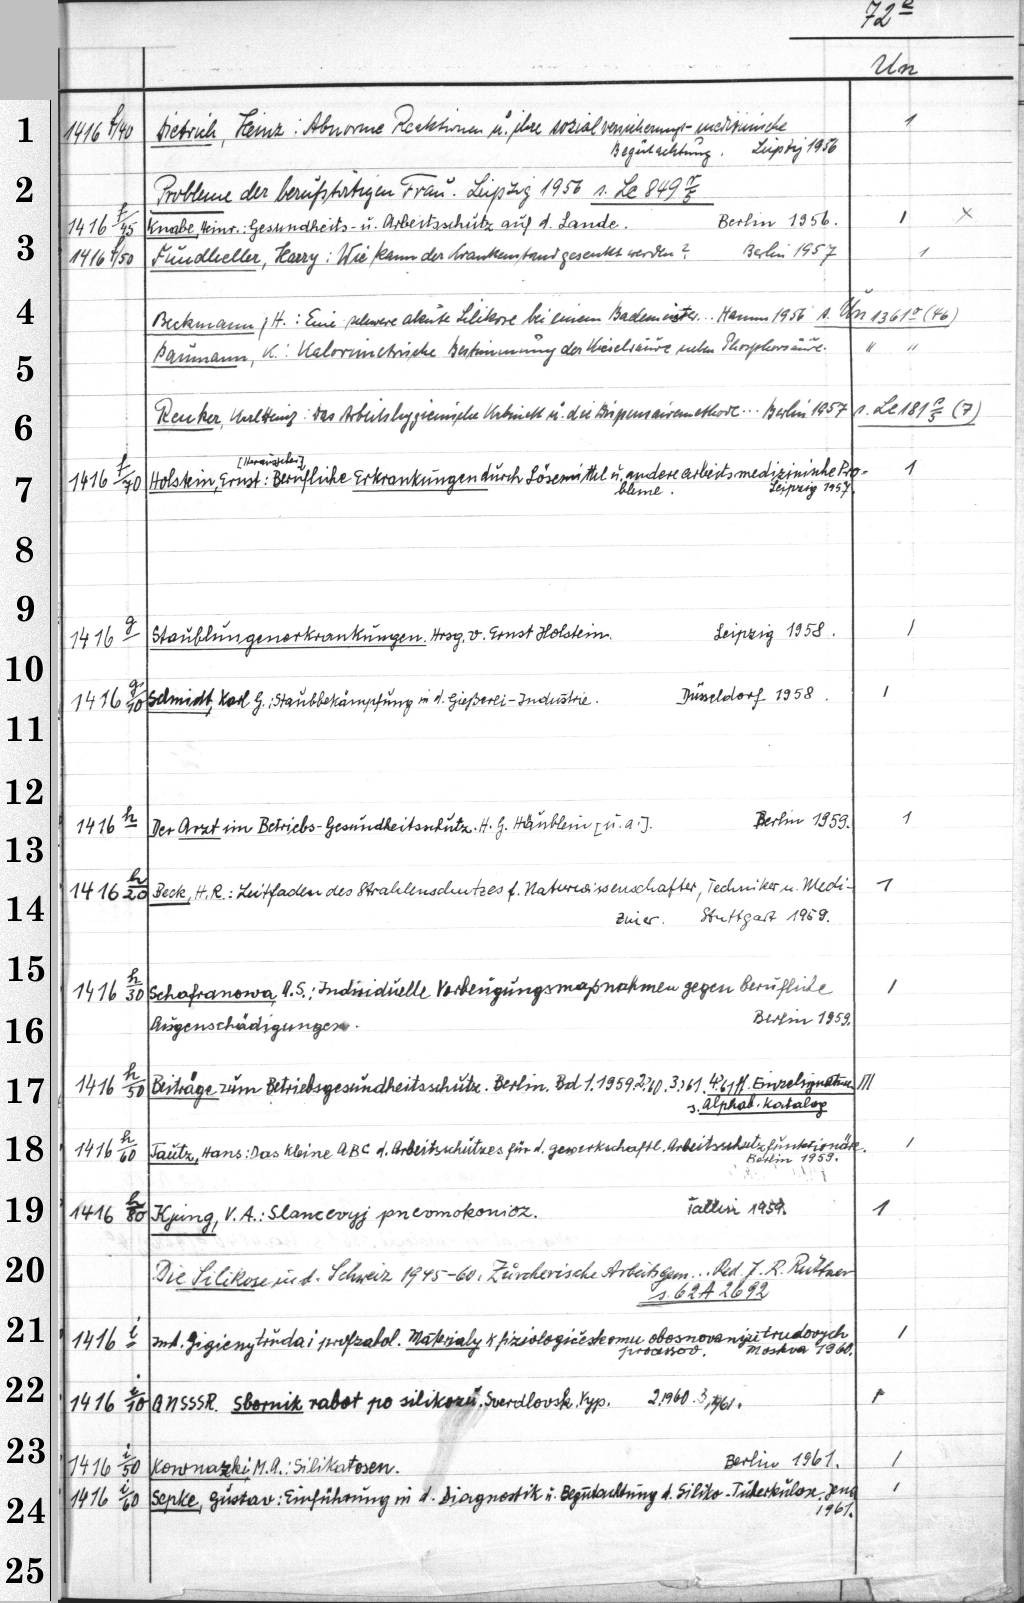 72
Un
1
1416 f/40 Dietrich, Heinz: Abnorme Reaktionen u. ihre sozialversicherungs-medizinische 1
Begutachtung. Leipzig 1956
2 Probleme der berufstätigen Frau. Leipzig 1956 s. Le 849
1416 f/45 Knabe, Heinr.: Gesundheits- u. Arbeitsschutz auf d. Lande. Berlin 1956. 1 x
3 1416 f/50 Fundheller, Harry: Wie kann der Krankenstand gesenkt werden? Berlin 1957 1
4 Beckmann, H.: Eine schwere akute Silikose bei einem Bademeister.. Hamm 1956 s. Un 1361 (46)
5 Baumann, K.: Kalorimetrische Bestimmung der Kieselsäure neben Phosphorsäure. " "
6 Renker, Karlheinz: Das Arbeitshygienische Kabinett u. die Dispensairemethode... Berlin 1957 s. Le 181 (7)
[Herausgeber]
7 1416 f/70 Holstein, Ernst: Berufliche Erkrankungen durch Lösemittel u. andere arbeitsmedizinische Pro- 1
bleme. Leipzig 1957.
8
9
1416 g Staublungenerkrankungen. Hrsg. v. Ernst Holstein. Leipzig 1958. 1
10
1416 g/10 Schmidt, Karl G.: Staubbekämpfung in d. Gießerei-Industrie. Düsseldorf 1958. 1
11
12
1416 h Der Arzt im Betriebs-Gesundheitsschutz. H. G. Häublein [u. a.]. Berlin 1959. 1
13
1416 h/20 Beck, H. R.: Leitfaden des Strahlenschutzes f. Naturwissenschafter, Techniker u. Medi- 1
14 ziner. Stuttgart 1959.
15
1416 h/30 Schafranowa, A. S.: Individuelle Vorbeugungsmaßnahmen gegen berufliche 1
16 Augenschädigungen. Berlin 1959.
17 1416 h/50 Beiträge zum Betriebsgesundheitsschutz. Berlin. Bd 1.1959. 2.'60. 3.'61. 4.'61 ff. Einzelsignatur III
s. Alphab. Katalog
18 1416 h/60 Tautz, Hans: Das kleine ABC d. Arbeitsschutzes für d. gewerkschaftl. Arbeitsschutzfunktionäre. 1
Berlin 1959.
19 1416 h/80 Kjung, V. A.: Slancevyj pnevmokonioz. Tallin 1959. 1
20 Die Silikose in d. Schweiz 1945-60. Zürcherische Arbeitsgem... Red. J. R. Rüttner
s. 62 A 2692
21 1416 i Inst. Gigieny truda i profzabol. Materialy k fiziologičeskomu obosnovaniju trudovych 1
processov. Moskva 1960.
22 1416 i/10 AN SSSR. Sbornik rabot po silikozu. Sverdlovsk. Vyp. 2.1960. 3.1961.
23 1416 i/50 Kownazki, M. A.: Silikatosen. Berlin 1961. 1
24 1416 i/60 Sepke, Gustav: Einführung in d. Diagnostik u. Begutachtung d. Siliko-Tuberkulose. Jena 1
1961.
25